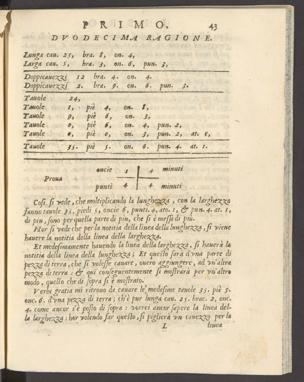 PRIMO. 43
DVODECIMA RAGIONE.
Lunga cau. 25, bra. 8, on. 4,
Larga cau. 1, bra. 3, on. 6, pun. 3,
Doppicauezzi 12 bra. 4. on. 4.
Doppicauezzi 2. bra. 9. on. 6. pun. 3.
Tauole 24,
Tauole 1, piè 4, on. 8,
Tauole 9, piè 6, on. 3,
Tauole 0, piè 6, on. 4, pun. 2,
Tauole 0, piè 6, on. 3. pun. 2, at. 1,
Tauole 35. piè 5. on. 6. pun. 4. at. 1.
oncie 4 minuti
Proua
punti 4 4 minuti
Così si vede, che moltiplicando la lunghezza, con la larghezza
fanno tauole 35, piedi 5, oncie 6, punti. 4, ato. 1, & pun. 4. at. 1,
di piu, sono per quella parte di piu, che si è messa di piu.
Pur si vede che per la notitia della linea della lunghezza, si viene
hauere la notitia della linea della larghezza.
Et medesimamente hauendo la linea della larghezza, si hauerà la
notitia della linea della lunghezza; Et questo sarà d'vna parte di
pezza di terra, che si volesse cauare, ouero aggiungere, ad vn'altra
pezza di terra: & qui conseguentemente si mostrarà per vn'altro
modo, quello che di sopra si è mostrato.
Verbi gratia mi ritrouo de cauare le medesime tauole 35. piè 5.
onc. 6. d'vna pezza di terra; ch'è pur lunga cau. 25. brac. 2, onc.
4. come ancor s'è posto di sopra: vorrei ancor sapere la linea del-
la larghezza; hor volendo far questo, si piglierà vn cauezzo per la
L linea